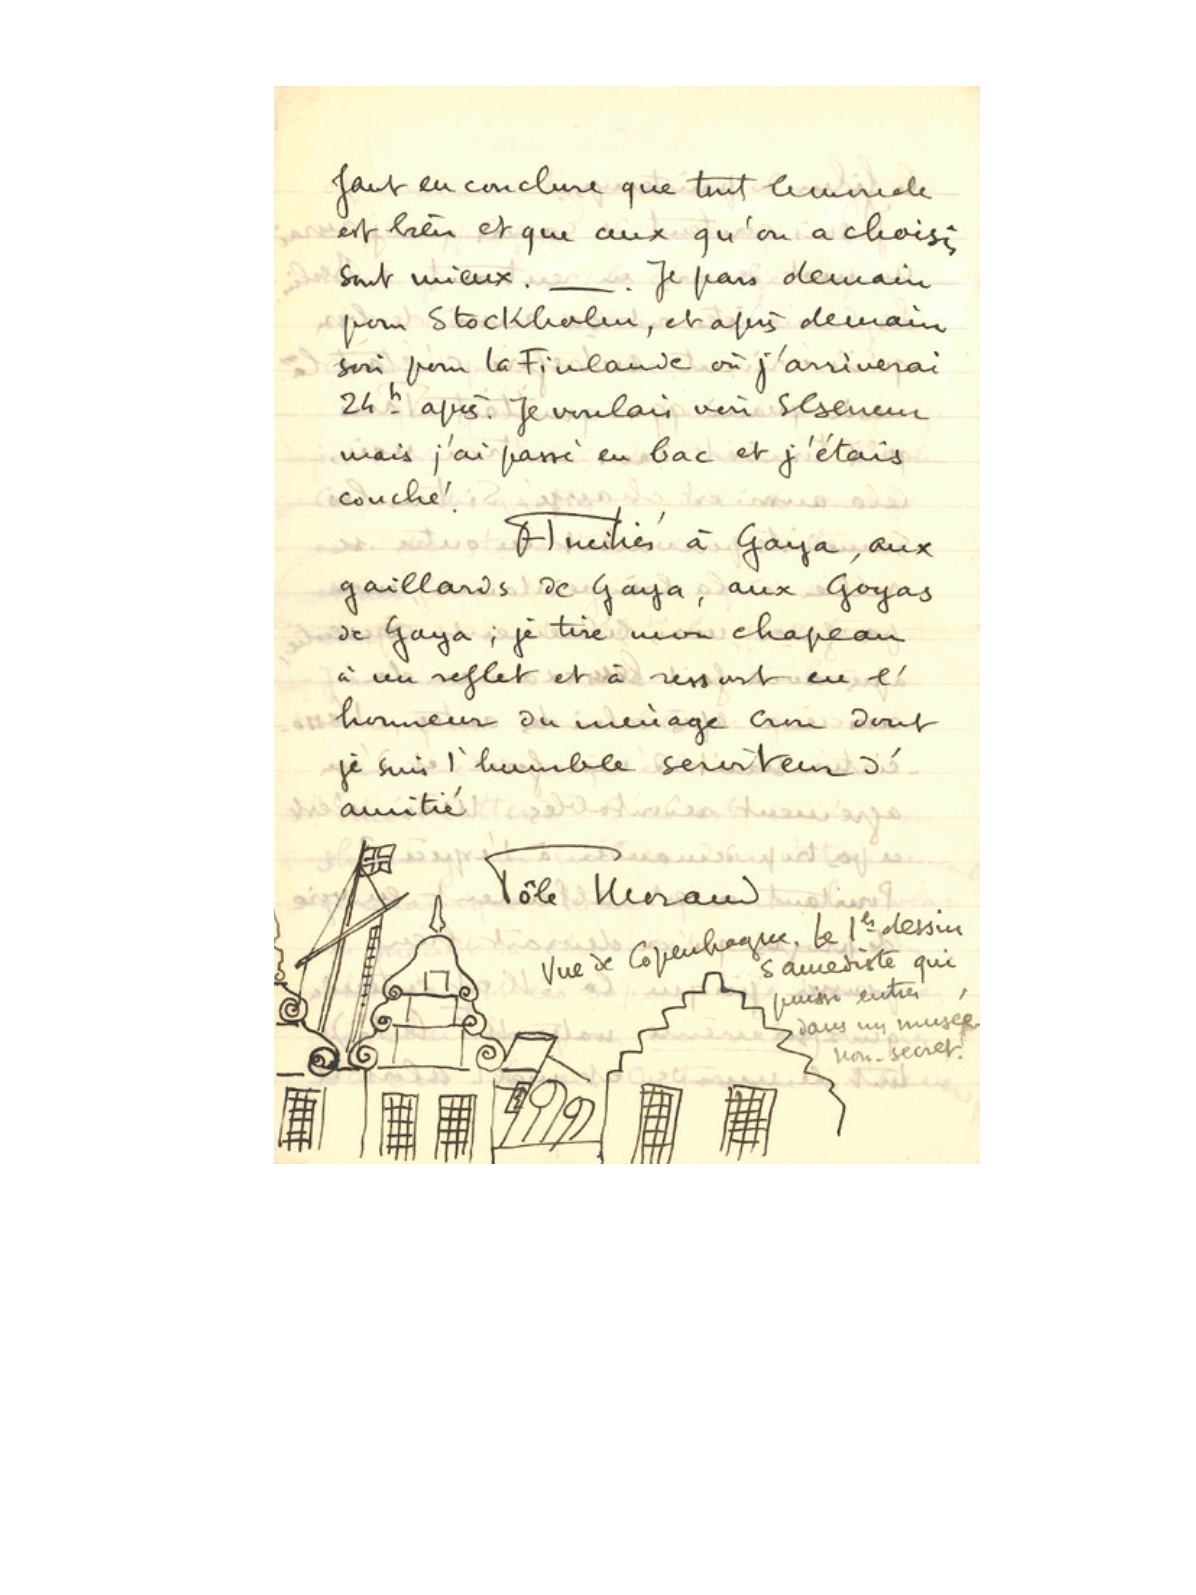 faut en conclure que tout le monde
est bien et que ceux qu'on a choisis
sont mieux. ___ . Je pars demain
pour Stockholm, et après demain
soir pour la Finlande où j'arriverai
24h après. Je voulais voir Elseneur
mais j'ai passé en bac et j'étais
couché.
Amitiés à Gaya, aux
gaillards de Gaya, aux Goyas
de Gaya ; je tire mon chapeau
à un reflet et à ressort en l'
honneur du ménage dont
je suis l'humble serviteur d'
amitié
Pôle Morand
Vue de Copenhague. Le 1er dessin
samediste qui
puisse entrer
dans un musée
non-secret.